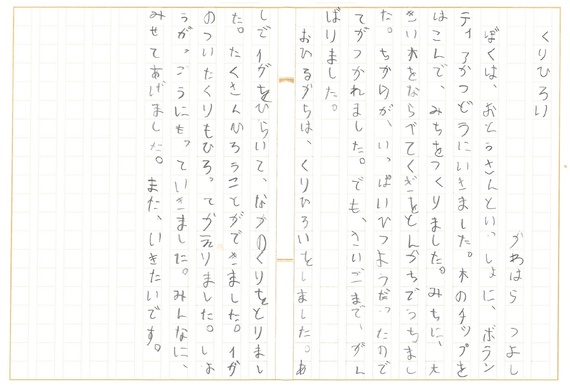 くりひろい
かわはら つよし
ぼくは、おとうさんといっしょに、ボラン
ティアかつどうにいきました。木のチップを
はこんで、みちをつくりました。みちに、大
きい木をならべてくぎをとんかちでうちまし
た。ちからが、いっぱいひつようだったので
てがつかれました。でも、さいごまで、がん
ばりました。
おひるからは、くりひろいをしました。あ
しでイガをひらいて、なかのくりをとりまし
た。たくさんひろうことができました。イガ
のついたくりもひろってかえりました。しょ
うがっこうにもっていきました。みんなに、
みせてあげました。また、いきたいです。